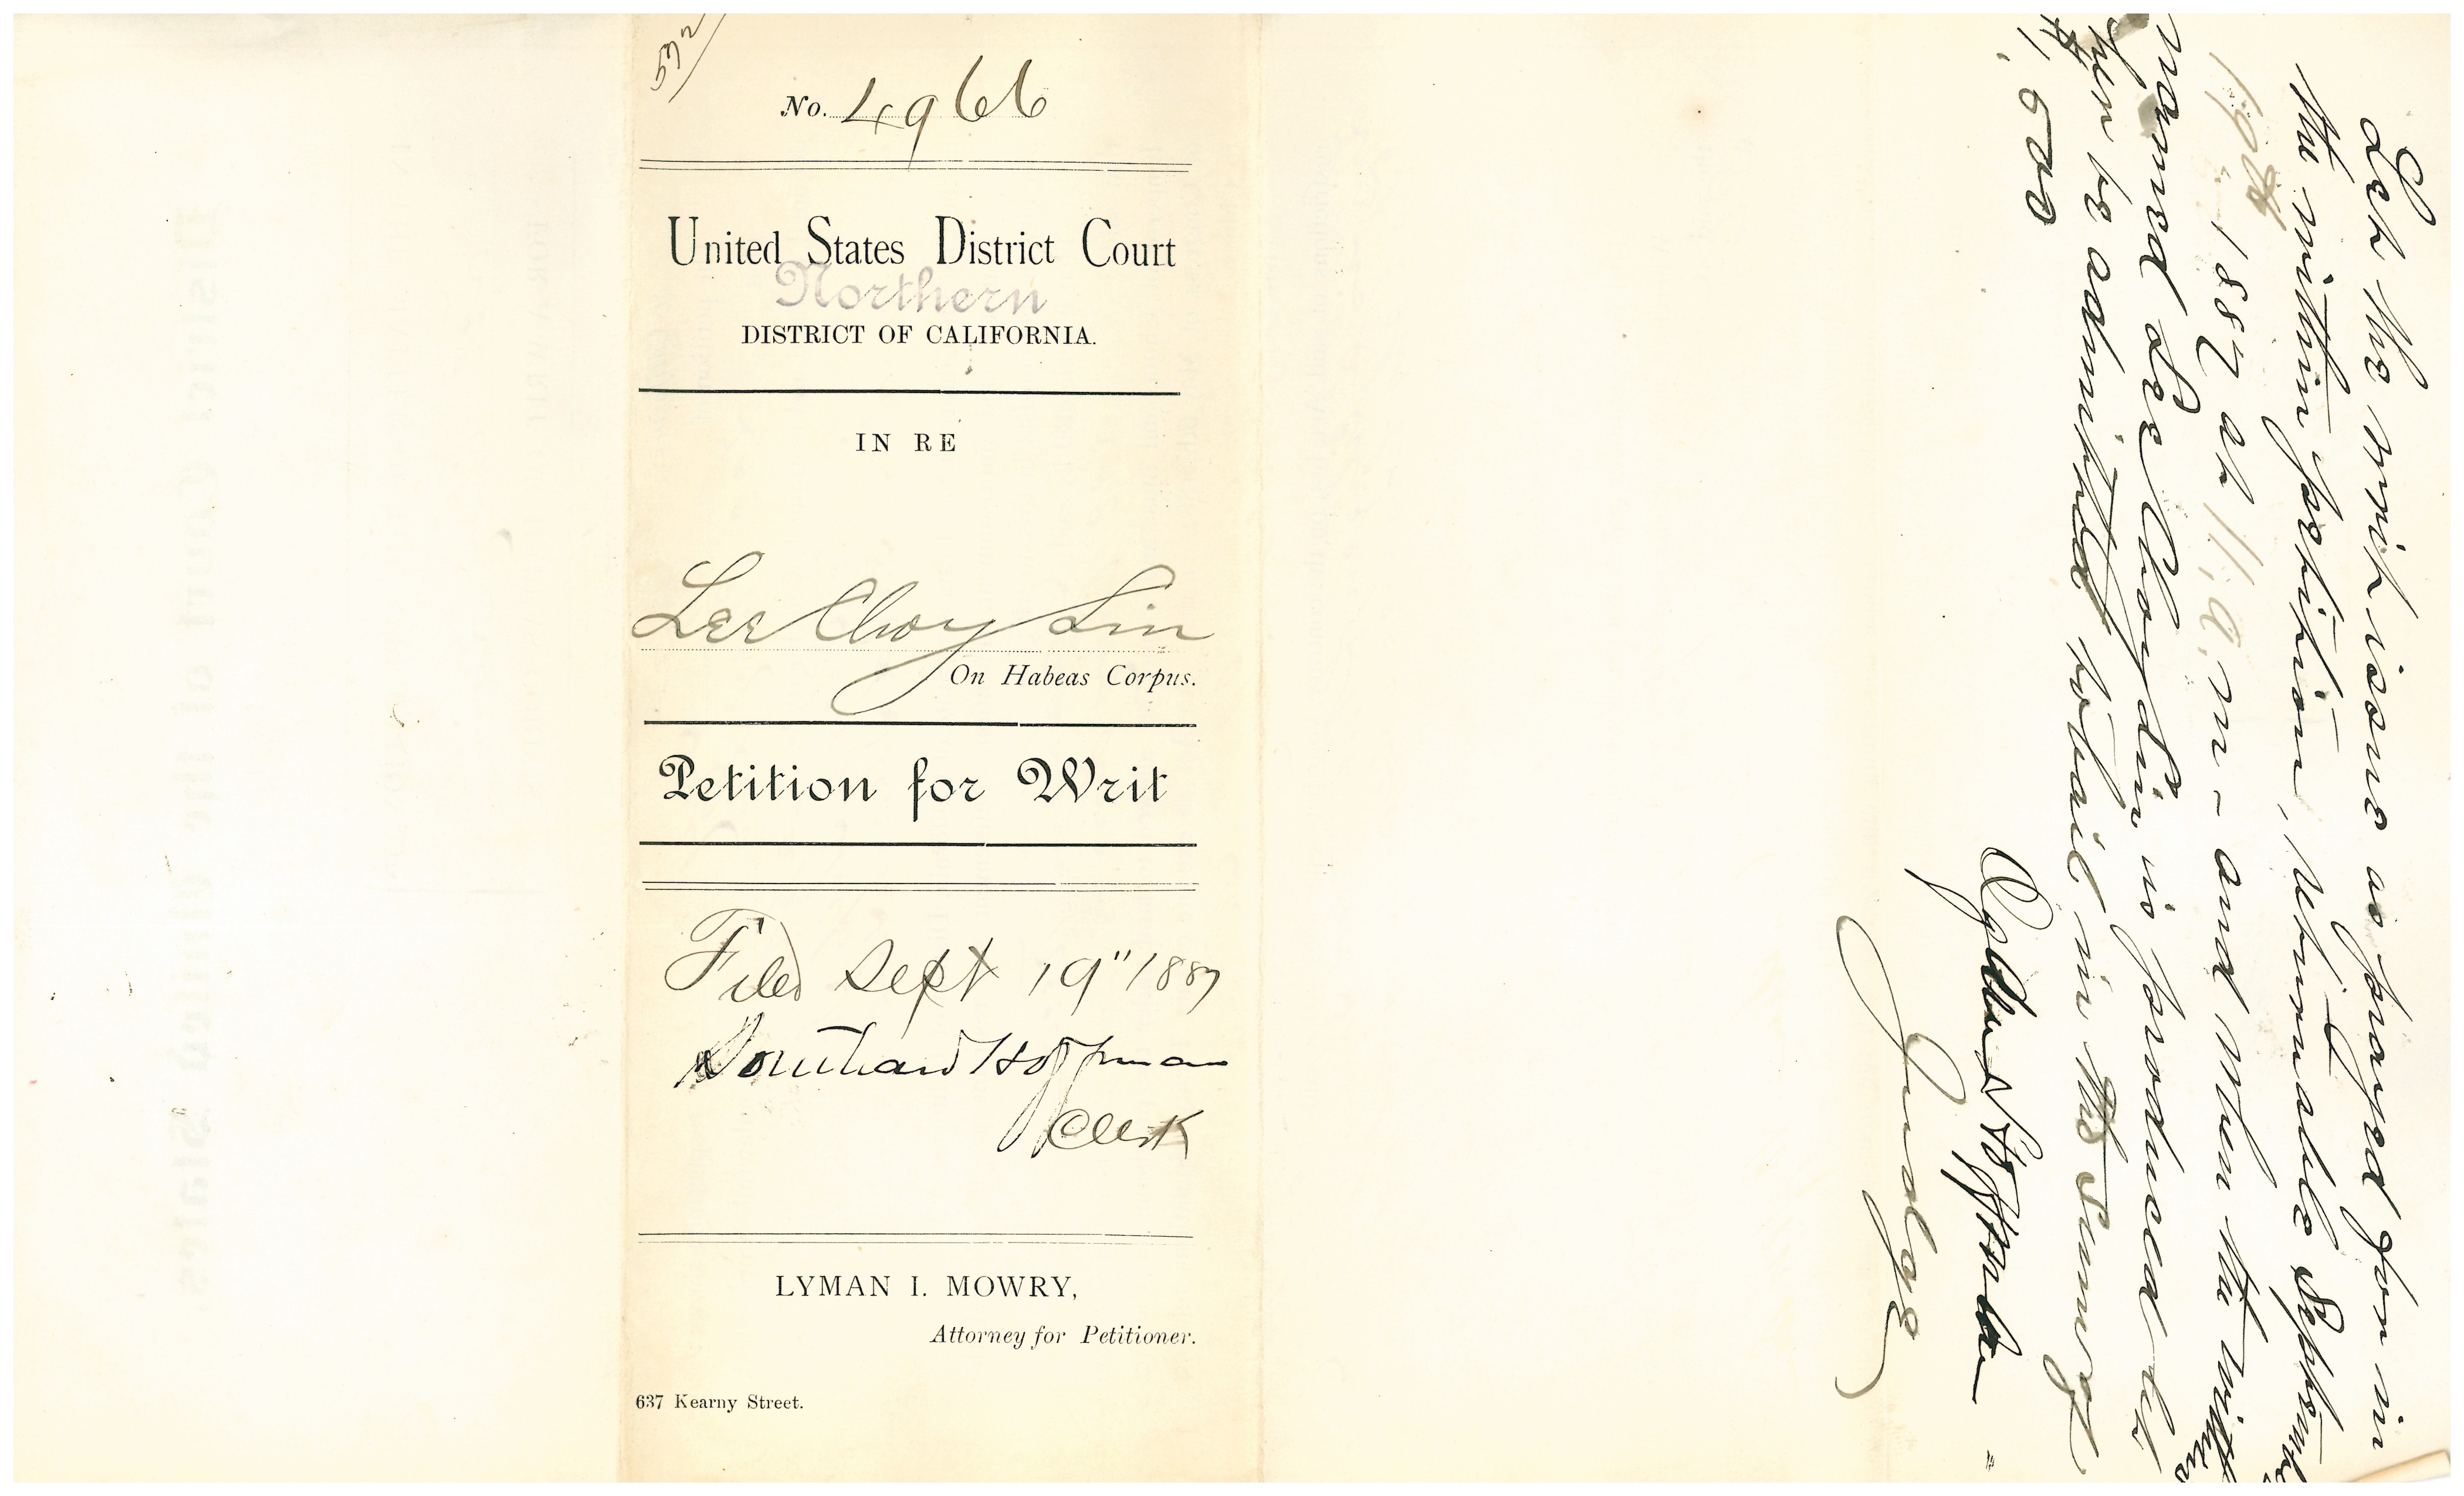 572
No. 4966
United States District Court
Northern
DISTRICT OF CALIFORNIA.
IN RE
Lee Choy Sin
On Habeas Corpus.
Petition for Writ
Filed Sept 19" 1887
Southard Hoffman
Clerk
LYMAN I. MOWRY,
Attorney for Petitioner.
637 Kearny Street.
Let the writ issue as prayed for in
the within petition, returnable September
19th 1887 at 11 a. m - and when the within
named Lee Choy Sin is produced let
her be admitted to bail in the sum of
$1,500
Ogden Hoffman
Judge